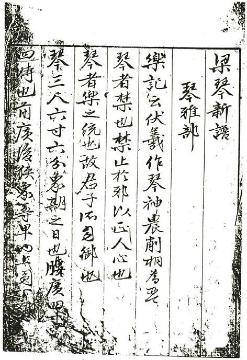 梁琴新譜
琴雅部
樂記云伏羲作琴神農削桐為琴
琴者禁也禁止於邪以正人心也
琴者樂之統也故君子所御也
琴三尺六寸六分象期之日也腹廣四
四時也前廣後狹象尊卑也上圓